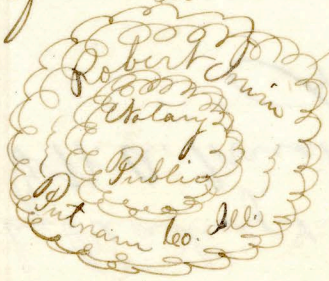 Robert Irwin
Notary
Public
Putnam Co. Ill.